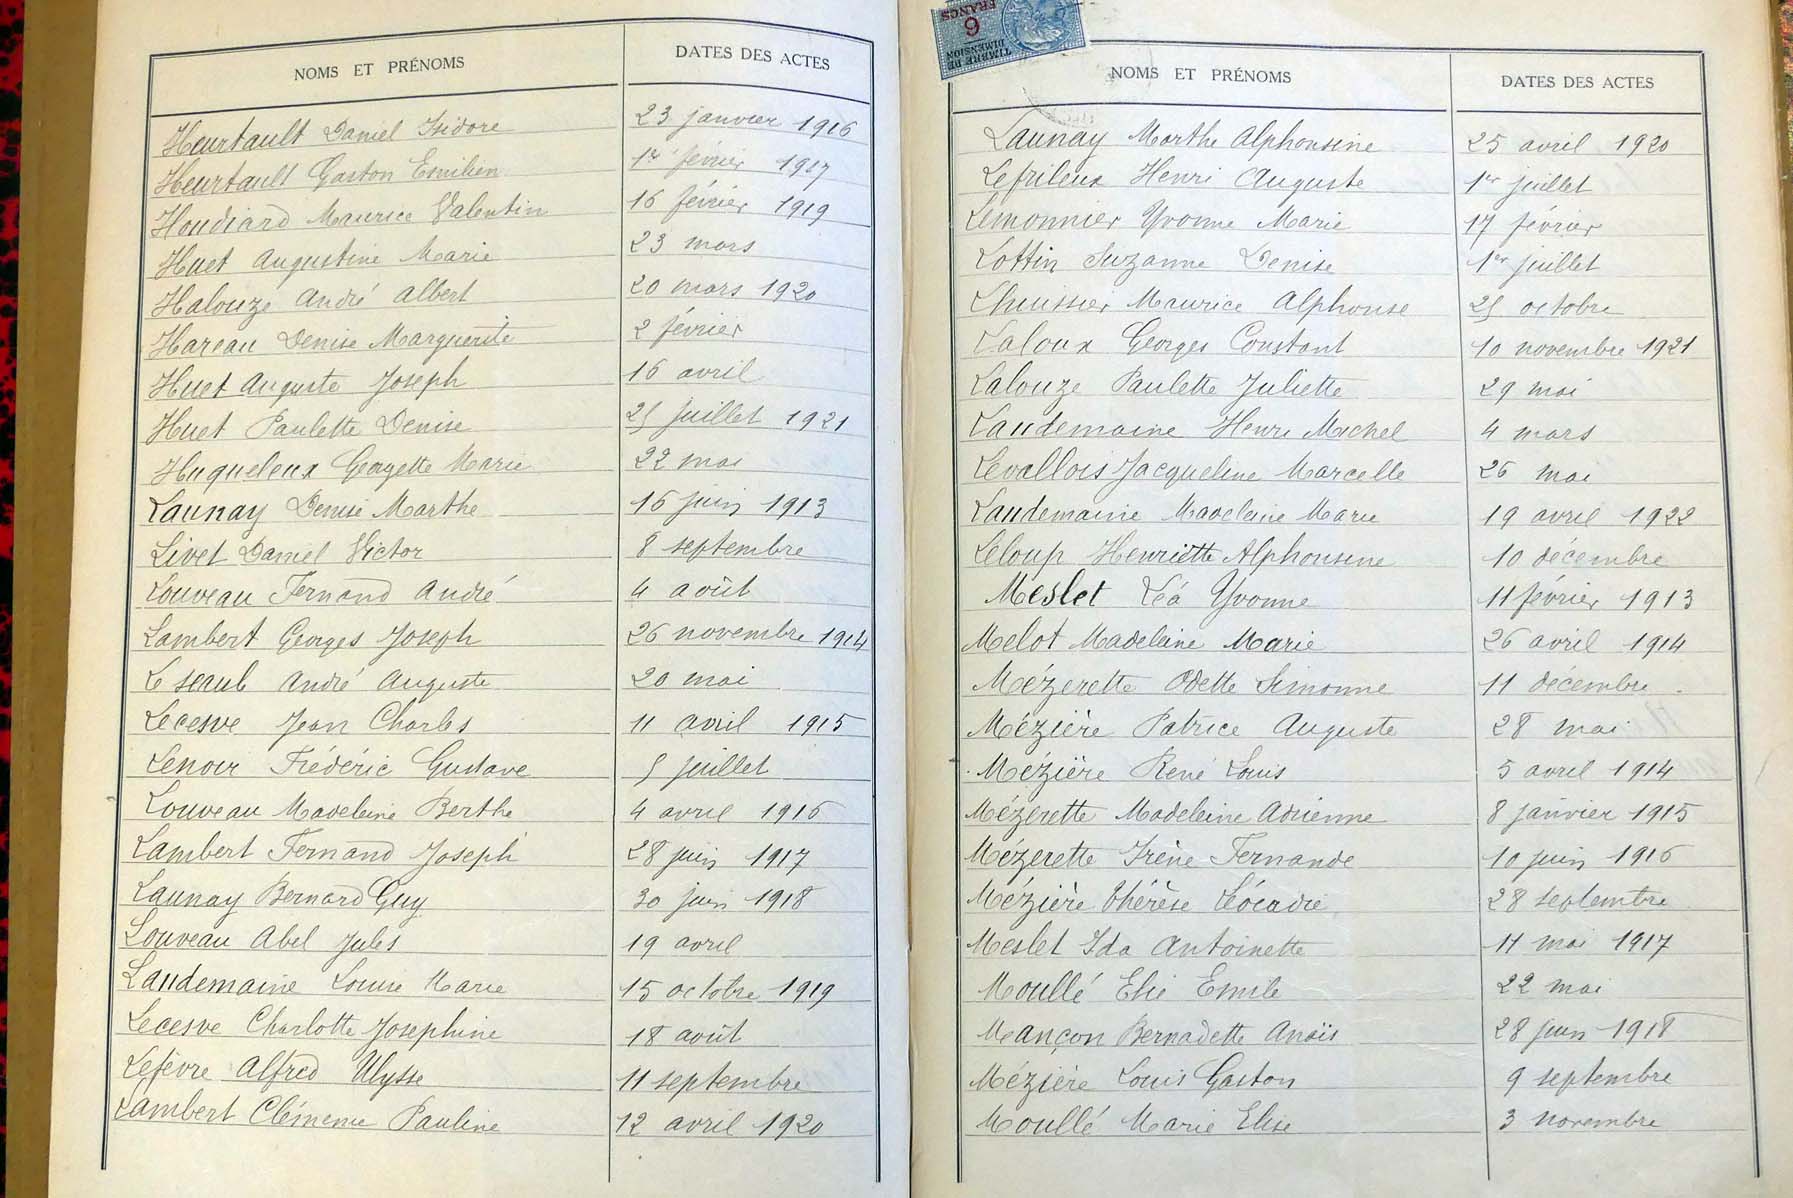 NOMS ET PRÉNOMS DATES DES ACTES
Heurtault Daniel Isidore 23 janvier 1916
Heurtault Gaston Emilien 1er février 1917
Houdiard Maurice Valentin 16 février 1919
Huet Augustine Marie 23 mars
Halouze André Albert 20 mars 1920
Hareau Denise Marguerite 2 février
Huet Auguste Joseph 16 avril
Huet Paulette Denise 25 juillet 1921
Huqueleux Georgette Marie 22 mai
Launay Denise Marthe 16 juin 1913
Livet Daniel Victor 8 septembre
Louveau Fernand André 4 août
Lambert Georges Joseph 26 novembre 1914
André Auguste 20 mai
Lecesve Jean Charles 11 avril 1915
Lenoir Frédéric Gustave 5 juillet
Louveau Madeleine Berthe 4 avril 1916
Lambert Fernand Joseph 28 juin 1917
Launay Bernard Guy 30 juin 1918
Louveau Abel Jules 19 avril
Laudemaine Louise Marie 15 octobre 1919
Lecesve Charlotte Joséphine 18 août
Lefèvre Alfred Ulysse 11 septembre
Lambert Clémence Pauline 12 avril 1920
TIMBRE DE DIMENSION
6 FRANCS
NOMS ET PRÉNOMS DATES DES ACTES
Launay Marthe Alphonsine 25 avril 1920
Lefrileux Henri Auguste 1er juillet
Lemonnier Yvonne Marie 17 février
Lottin Suzanne Denise 1er juillet
Lhuissier Maurice Alphonse 25 octobre
Laloux Georges Constant 10 novembre 1921
Lalouze Paulette Juliette 29 mai
Laudemaine Henri Michel 4 mars
Levallois Jacqueline Marcelle 26 mai
Laudemaine Madeleine Marie 19 avril 1922
Leloup Henriette Alphonsine 10 décembre
Meslet Léa Yvonne 11 février 1913
Melot Madeleine Marie 26 avril 1914
Mézerette Odette Simonne 11 décembre
Mézière Patrice Auguste 28 mai
Mézière René Louis 5 avril 1914
Mézerette Madeleine Adrienne 8 janvier 1915
Mézerette Irène Fernande 10 juin 1916
Mézière Thérèse Léocadie 28 septembre
Meslet Ida Antoinette 11 mai 1917
Moullé Elie Emile 22 mai
Mançon Bernadette Anaïs 28 juin 1918
Mézière Louis Gaston 9 septembre
Moullé Marie Elise 3 novembre